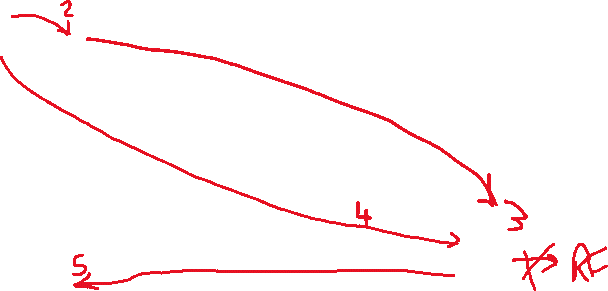 2
3
4
5
RE